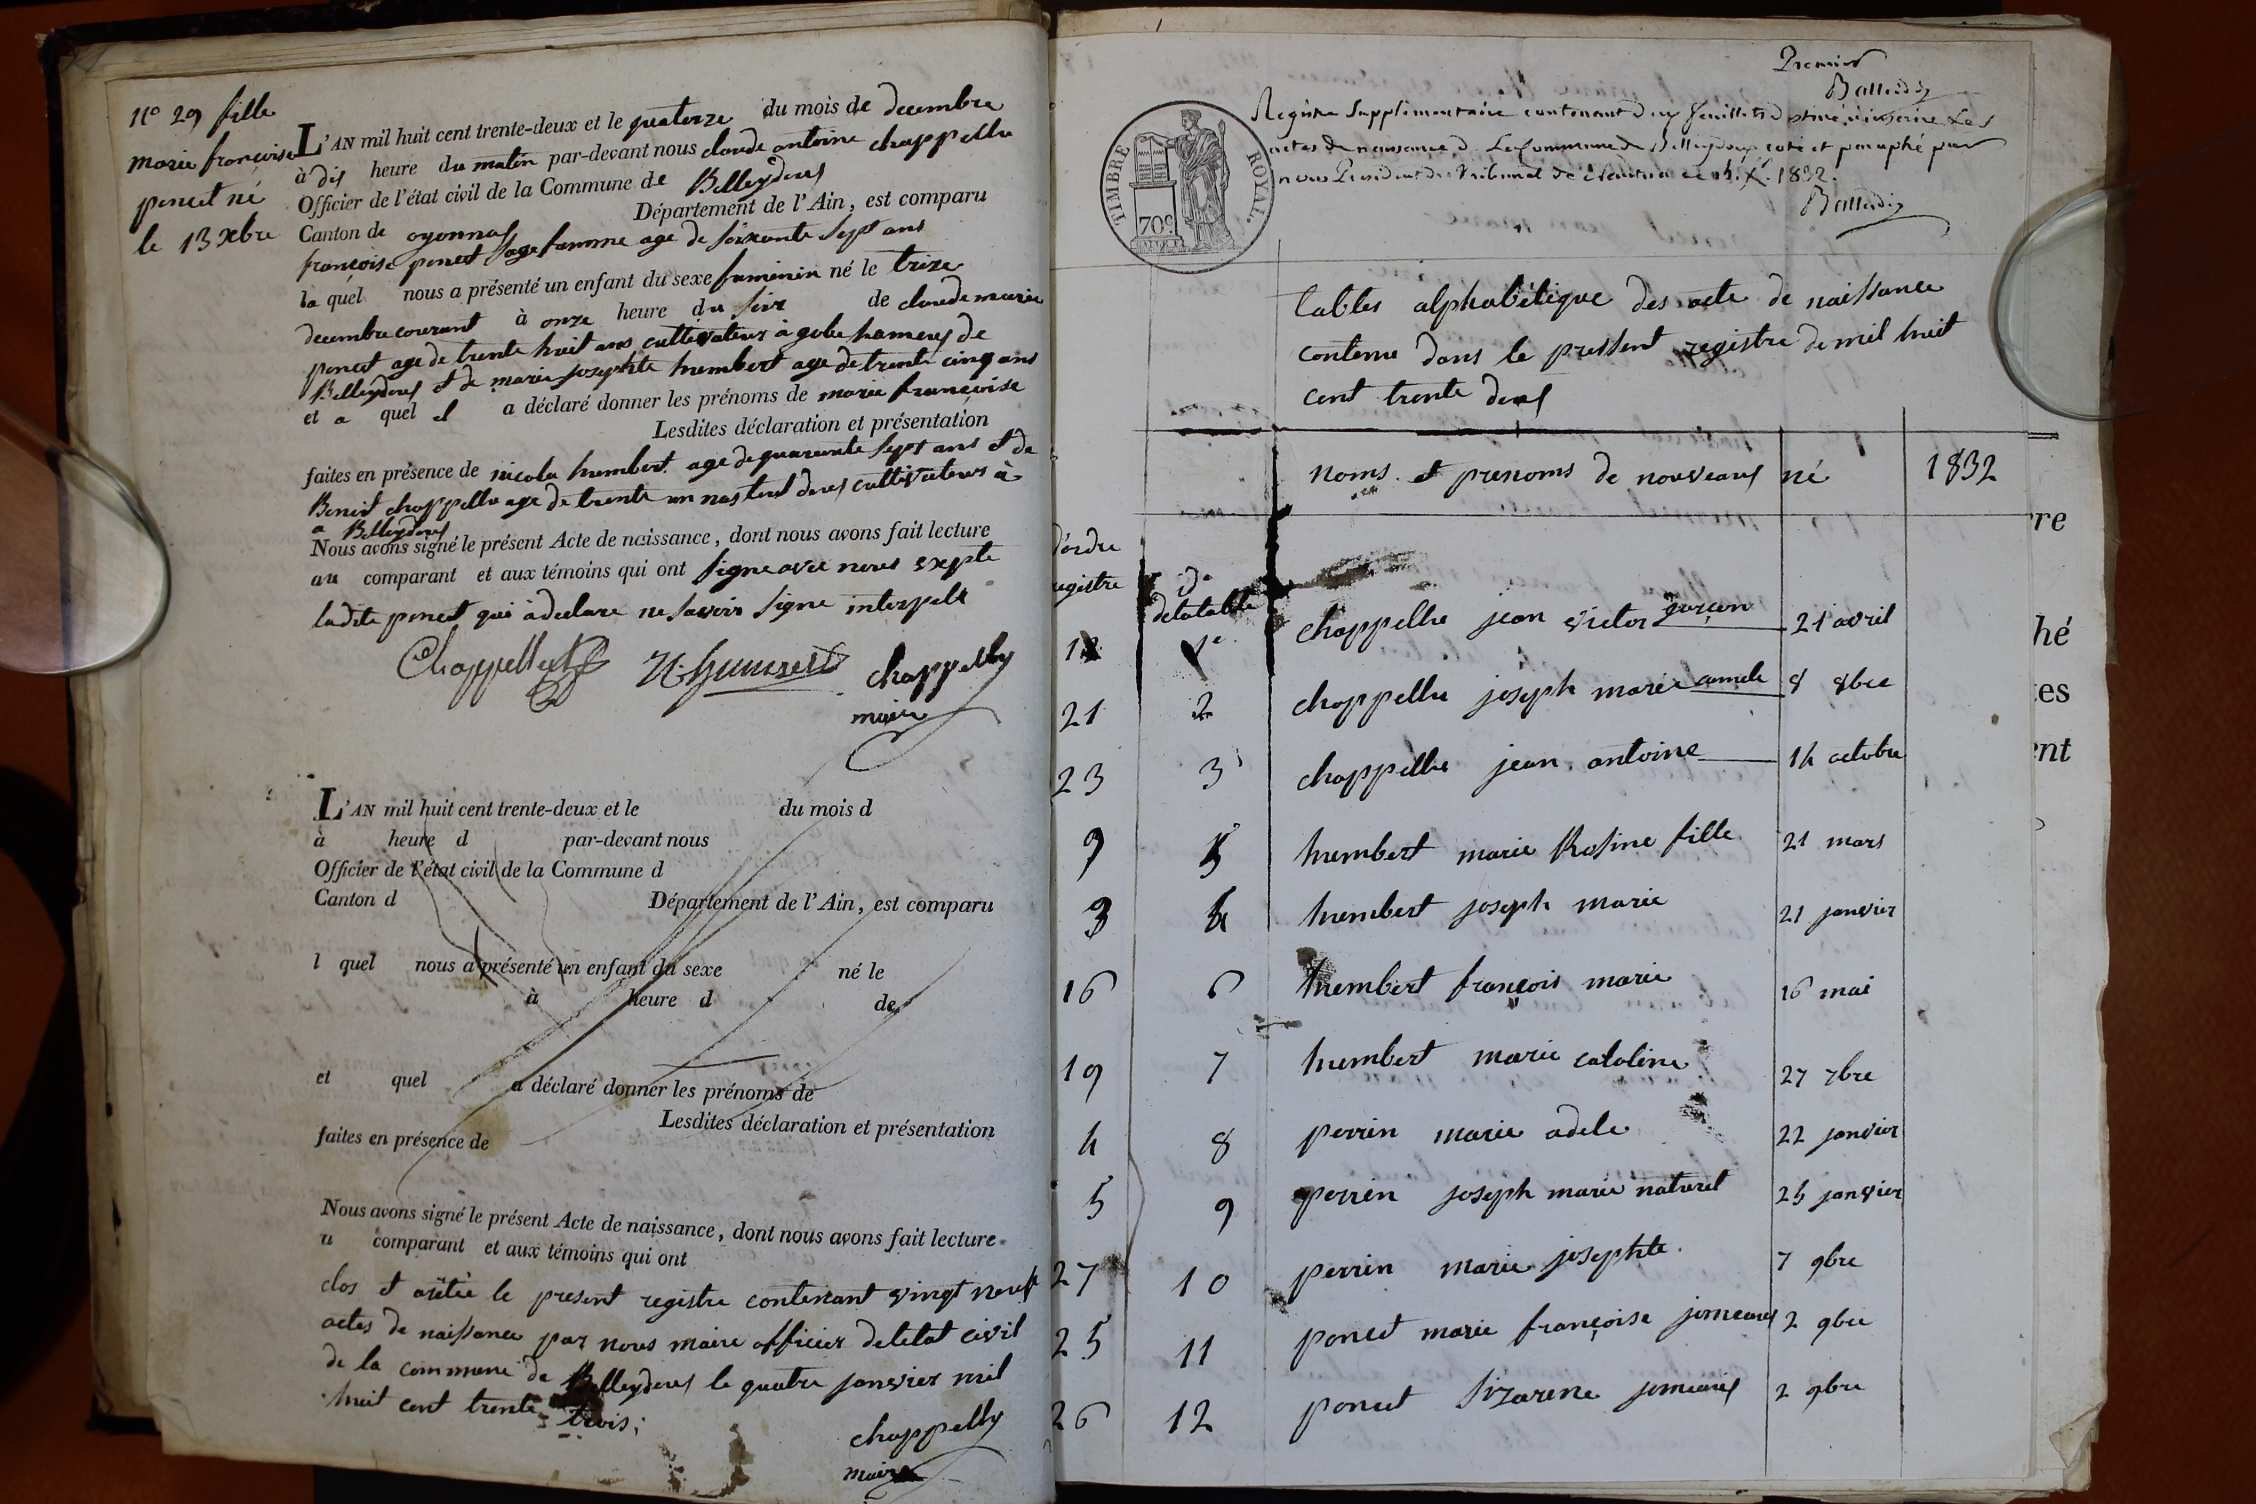 N° 29 fille
marie françoise
poncet né
le 13 xbre
L'AN mil huit cent trente-deux et le quatorze du mois de decembre
à dis heure du matin par-devant nous claude antoine chappellu
Officier de l'état civil de la Commune de Belleydoux
Canton de oyonnax Département de l'Ain, est comparu
françoise poncet sage famme age de soixante sept ans
la quel nous a présenté un enfant du sexe faminin né le trize
decembre courant à onze heure du soir de claude marie
poncet age de trente huit ans cultivateur à gobe hameux de
Belleydoux et de marie josephte humbert age de trente cinq ans
et a quel el a déclaré donner les prénoms de marie françoise
Lesdites déclaration et présentation
faites en présence de nicola humbert age de quarante sept ans et de
Benoit chappellu age de trente un ans tout deux cultivateurs à
a Belleydoux
Nous avons signé le présent Acte de naissance, dont nous avons fait lecture
au comparant et aux témoins qui ont signe avec nous exepte
ladite poncet qui à declare ne savoir signe interpele
Chappellut N. humbert chappelluy
maire
L'AN mil huit cent trente-deux et le du mois d
à heure d par-devant nous
Officier de l'état civil de la Commune d
Canton d Département de l'Ain, est comparu
l quel nous a présenté un enfant du sexe né le
à heure d de
et quel a déclaré donner les prénoms de
Lesdites déclaration et présentation
faites en présence de
Nous avons signé le présent Acte de naissance, dont nous avons fait lecture
u comparant et aux témoins qui ont
clos et arêtée le present registre contenant vingt neuf
actes de naissance par nous maire officier de letat civil
de la commune de Belleydoux le quatre janvier mil
huit cent trente trois;
chappelluy
maire
Premier
TIMBRE ROYAL.
70c
Registre Supplémentaire contenant deux feuillets destiné à inscrire les
actes de naissance de la Commune de Belleydoux coté et paraphé par
nous Président du Tribunal de Nantua ce 1832.
tables alphabétique des acte de naissance
contenu dans le present registre de mil huit
cent trente deux
noms et prenoms de nouveaux né 1832
d'ordre
registre de la table
12 1e chappellu jean victor garçon 21 avril
21 2 chappellu joseph marie 8 8bre
23 3 chappellu jean antoine 14 octobre
9 5 humbert marie Rosine fille 21 mars
3 4 humbert joseph marie 21 janvier
16 6 humbert françois marie 16 mai
19 7 humbert marie catoline 27 7bre
4 8 perrin marie adele 22 janvier
5 9 perrin joseph marie naturel 25 janvier
27 10 perrin marie josephte 7 9bre
25 11 poncet marie françoise jumeaux 2 9bre
26 12 poncet jumeaux 2 9bre
re
hé
tes
ent